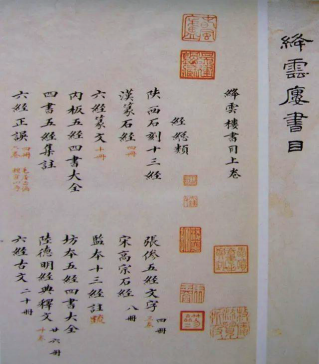 絳雲廔書目
絳雲樓書目上卷
經總類
陝西石刻十三經
張參五經文字 四冊
漢篆石經 四冊
宋高宗石經 八冊
六經篆文 十冊
監本十三經註疏
內板五經四書大全
坊本五經四書大全
四書五經集註
陸德明經典釋文 廿六冊
六經正誤 四冊
六經古文 二十冊